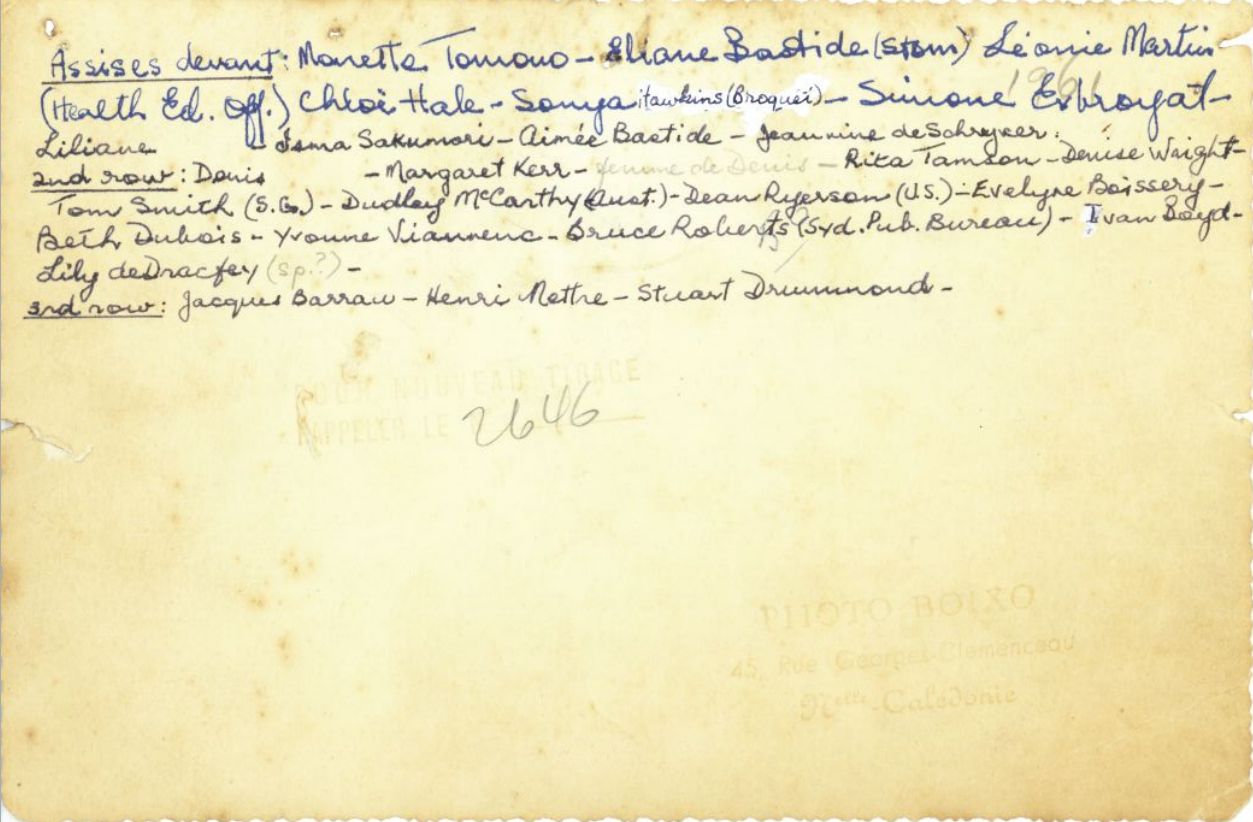 Assises devant: Manette Tomono - Eliane Bastide (Stom) Léonie Martin -
1961
(Health Ed. Off.) Chloë Hale - Sonya Hawkins (Broquet) - Simone Exbroyat -
Liliane - Isma Sakumori - Aimée Bastide - Jeannine de Schryver.
2nd row: Denis - Margaret Kerr - femme de Denis - Rita Tamson - Denise Wright -
Tom Smith (S.G.) - Dudley McCarthy (Aust.) - Dean Ryerson (U.S.) - Evelyne Boissery -
Beth Dubois - Yvonne Viannenc - Bruce Roberts? (Syd. Pub. Bureau) - Ivan Boyd -
Lily de (sp.?) -
3rd row: Jacques Barrau - Henri Mettre - Stuart Drummond -
POUR NOUVEAU TIRAGE
RAPPELER LE 2646
PHOTO BOIXO
45, Rue Georges Clemenceau
Nelle-Calédonie